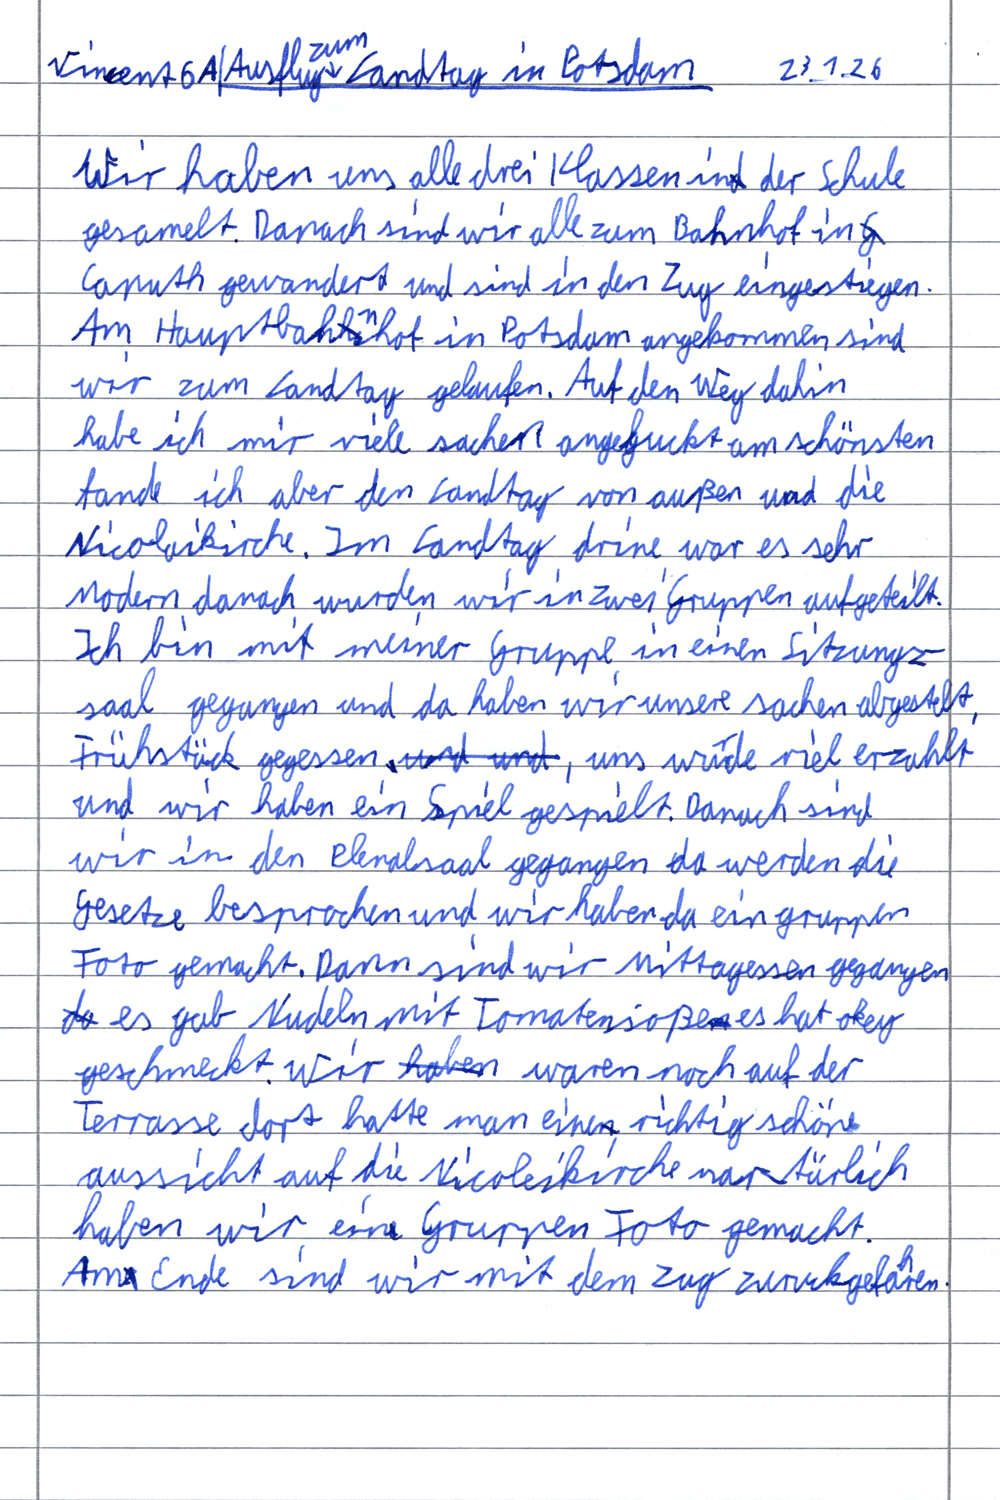 Vincent 6A | Ausflug zum Landtag in Potsdam 23.1.26
Wir haben uns alle drei Klassen in der Schule
gesamelt. Danach sind wir alle zum Bahnhof in
Caputh gewandert und sind in den Zug eingestiegen.
Am Hauptbahnhof in Potsdam angekommen sind
wir zum Landtag gelaufen. Auf den Weg dahin
habe ich mir viele sachen angeguckt am schönsten
fande ich aber den Landtag von außen und die
Nicolaikirche. Im Landtag drine war es sehr
Modern danach wurden wir in zwei Gruppen aufgeteilt.
Ich bin mit meiner Gruppe in einen Sitzungs-
saal gegangen und da haben wir unsere sachen abgestelt,
Frühstück gegessen, und und, uns wurde viel erzahlt
und wir haben ein Spiel gespielt. Danach sind
wir in den Plenalsaal gegangen da werden die
Gesetze besprochen und wir haben da ein gruppen
Foto gemacht. Dann sind wir Mittagessen gegangen
da es gab Nudeln mit Tomatensoße es hat okey
geschmeckt. Wir haben waren noch auf der
Terrasse dort hatte man einen richtig schöne
aussicht auf die Nicoleikirche nartürlich
haben wir ein Gruppen Foto gemacht.
Am Ende sind wir mit dem zug zuruckgefahren.